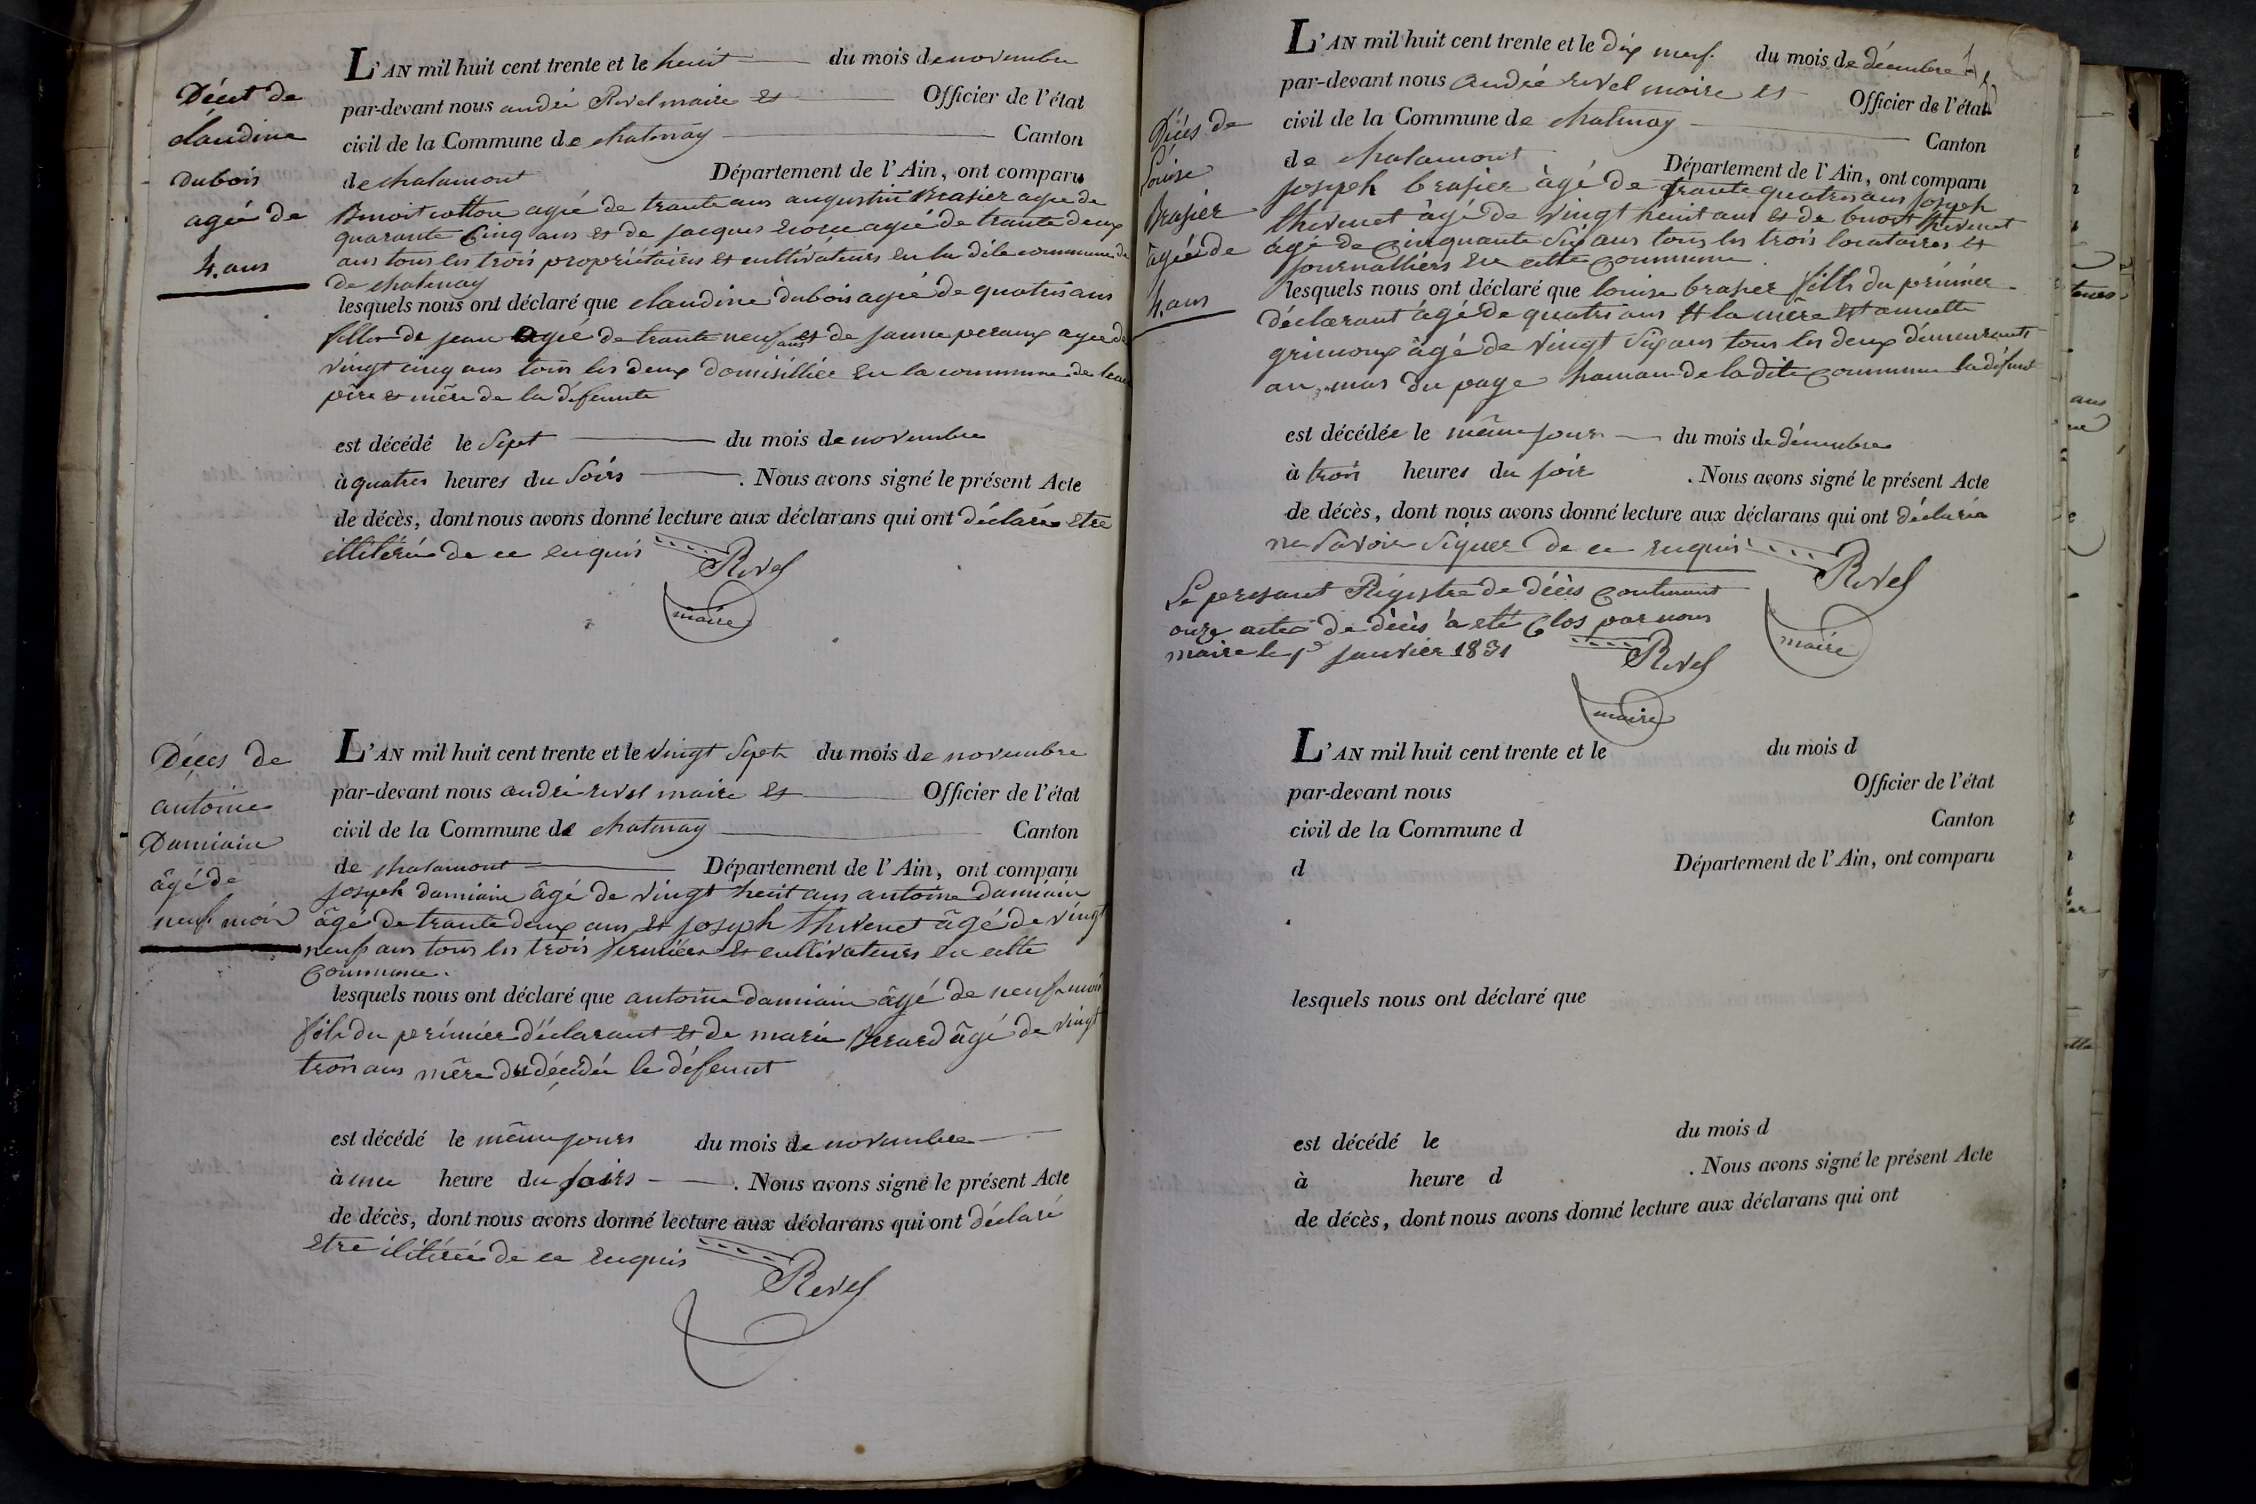 Décet de
claudine
dubois
agée de
4. ans
L'AN mil huit cent trente et le huit du mois de novembre
par-devant nous andré Revel maire et Officier de l'état
civil de la Commune de chatenay Canton
de chalamont Département de l'Ain, ont comparu
Benoit cotton agée de trante ans augustin Brasier agée de
quarante cinq ans et de jacques agée de trante deux
ans tous les trois propriétaires et cultivateurs en la dite commune de
de chatenay
lesquels nous ont déclaré que claudine dubois agée de quatres ans
filles de jean agée de trante neuf ans et de janne peraux agée de
vingt cinq ans tous les deux domisilliée en la commune de
père et mère de la défennte
est décédé le Sept du mois de novembre
à quatres heures du Soirs . Nous avons signé le présent Acte
de décès, dont nous avons donné lecture aux déclarans qui ont déclarés etre
illitérée de ce enquis Revel
maire
Déces de
antoine
Damiain
âgé de
neuf mois
L'AN mil huit cent trente et le vingt Sept du mois de novembre
par-devant nous andré revel maire et Officier de l'état
civil de la Commune de chatenay Canton
de chalamont Département de l'Ain, ont comparu
joseph damiain âgé de vingt heit ans antoine damiain
âgé de trante deux ans et joseph thevenet âgé de vingt
neuf ans tous les trois fermiers et cultivateurs en cette
commune.
lesquels nous ont déclaré que antoine damiain âgé de neuf mois
fils du prémiér déclarant et de marie Berard âgé de vingt
trois ans mère du décédée le défennt
est décédé le même jours du mois de novembre
à une heure du soirs . Nous avons signé le présent Acte
de décès, dont nous avons donné lecture aux déclarans qui ont déclaré
etre ilitérée de ce enquis
Revel
L'AN mil huit cent trente et le dix neuf. du mois de décembre
par-devant nous andré revel maire et Officier de l'état
civil de la Commune de chatenay Canton
de chalamont Département de l'Ain, ont comparu
Décés de
Louise
Brasier
âgée de
4. ans
joseph brasier âgé de trante quatres ans joseph
thevenet âgé de vingt heuit ans et de benoit thevenet
âgé de cinquante Six ans tous les trois locataires et
journalliers en cette commune.
lesquels nous ont déclaré que louise brasier fille du prémiér
déclarant âgé de quatres ans et la mère est annette
grimoux âgé de vingt Six ans tous les deux démeurants
au mas du page hamau de la dite commune la défunt
est décédée le même jours du mois de décembre
à trois heures du soir . Nous avons signé le présent Acte
de décès, dont nous avons donné lecture aux déclarans qui ont déclarée
ne Savoir Signer de ce enquis Revel
maire
Le presant Régistre de décès contenant
onze actes de décès à eté clos par nous
maire le 1er janvier 1831 Revel
maire
L'AN mil huit cent trente et le du mois d
par-devant nous Officier de l'état
civil de la Commune d Canton
d Département de l'Ain, ont comparu
lesquels nous ont déclaré que
est décédé le du mois d
à heure d . Nous avons signé le présent Acte
de décès, dont nous avons donné lecture aux déclarans qui ont